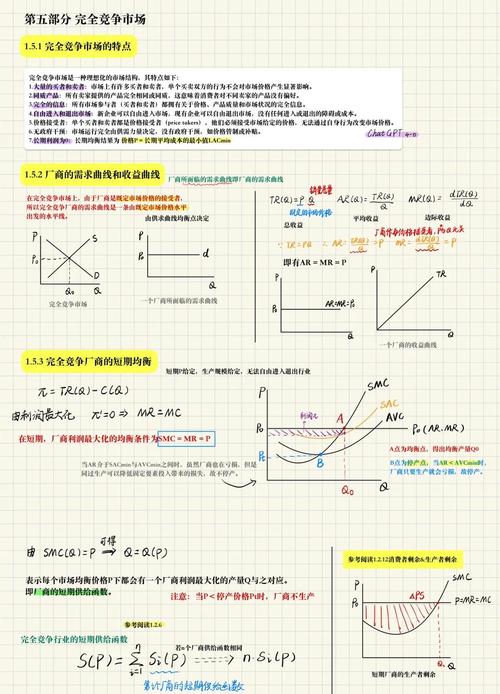 第五部分 完全竞争市场
1.5.1 完全竞争市场的特点
完全竞争市场是一种理想化的市场结构，其特点如下：
1.大量的买者和卖者：市场上有许多买者和卖者，单个买卖双方的行为不会对市场价格产生显著影响。
2.同质产品：所有卖家提供的产品完全相同或同质，这意味着消费者对不同卖家的产品没有偏好。
3.完全的信息：所有市场参与者（买者和卖者）都拥有关于价格、产品质量和市场状况的完全信息。
4.自由进入和退出市场：新企业可以自由进入市场，现有企业可以自由退出市场，没有任何进入或退出的障碍或成本。
5.价格接受者：单个买者和卖者都是价格接受者（price takers），他们必须接受市场给定的价格，无法通过自身行为改变市场价格。
6.无政府干预：市场运行完全由供需力量决定，没有政府干预，如价格管制或补贴。
7.长期利润为0：长期均衡结果为 价格P = 长期平均成本的最小值LACmin
ChatGPT 4-o
1.5.2 厂商的需求曲线和收益曲线
厂商所面临的需求曲线即厂商的需求曲线
在完全竞争市场上，由于厂商是既定市场价格的接受者，
所以完全竞争厂商的需求曲线是一条由既定市场价格水平
出发的水平线。
由供求曲线均衡点决定
P
S
P₀
D
Q₀
Q
完全竞争市场
P
d
Q
一个厂商所面临的需求曲线
销售量
TR(Q)=P·Q
既定的市场价格
总收益
AR(Q)=TR(Q)/Q
平均收益
MR(Q)=dTR(Q)/dQ
边际收益
∵TR=PQ ∴AR=TR(Q)/Q=P MR=dTR(Q)/Q=P
即有AR = MR = P
P
AR=MR=P₀
Q
P
TR
Q
一个厂商的收益曲线
1.5.3 完全竞争厂商的短期均衡
短期P给定，生产规模给定，无法自由进入退出行业
π=TR(Q)-C(Q)
由利润最大化 π'=0⇒MR=MC
在短期，厂商利润最大化的均衡条件为SMC = MR = P
当AR介于SACmin与AVCmin之间时，虽然厂商也在亏损，但是
同过生产可以降低固定要素投入带来的损失，故不停产。
P
SMC
SAC
AVC
利润π
A
P₀
P₀(AR.MR)
Pt
B
Q₀
Q
A点为均衡点，得出均衡产量Q0
B点为停产点，当AR＜AVCmin时，
厂商只要生产就会亏损，故停产。
由 SMC(Q)=P 可得 ⟹ Q=Q(P)
表示每个市场均衡价格P下都会有一个厂商利润最大化的产量Q与之对应。
即厂商的短期供给函数。
注意：当P＜停产价格Pt时，厂商不生产
参考阅读1.2.6
完全竞争行业的短期供给函数
若n个厂商供给函数相同
S(P)=∑ⁿᵢ₌₁Si(P) ----→ n·Si(P)
第i个厂商的短期供给函数
参考阅读1.2.12消费者剩余&生产者剩余
P
SMC
ΔPS
P₀
P=MR=MC
Q
短期厂商的生产者剩余